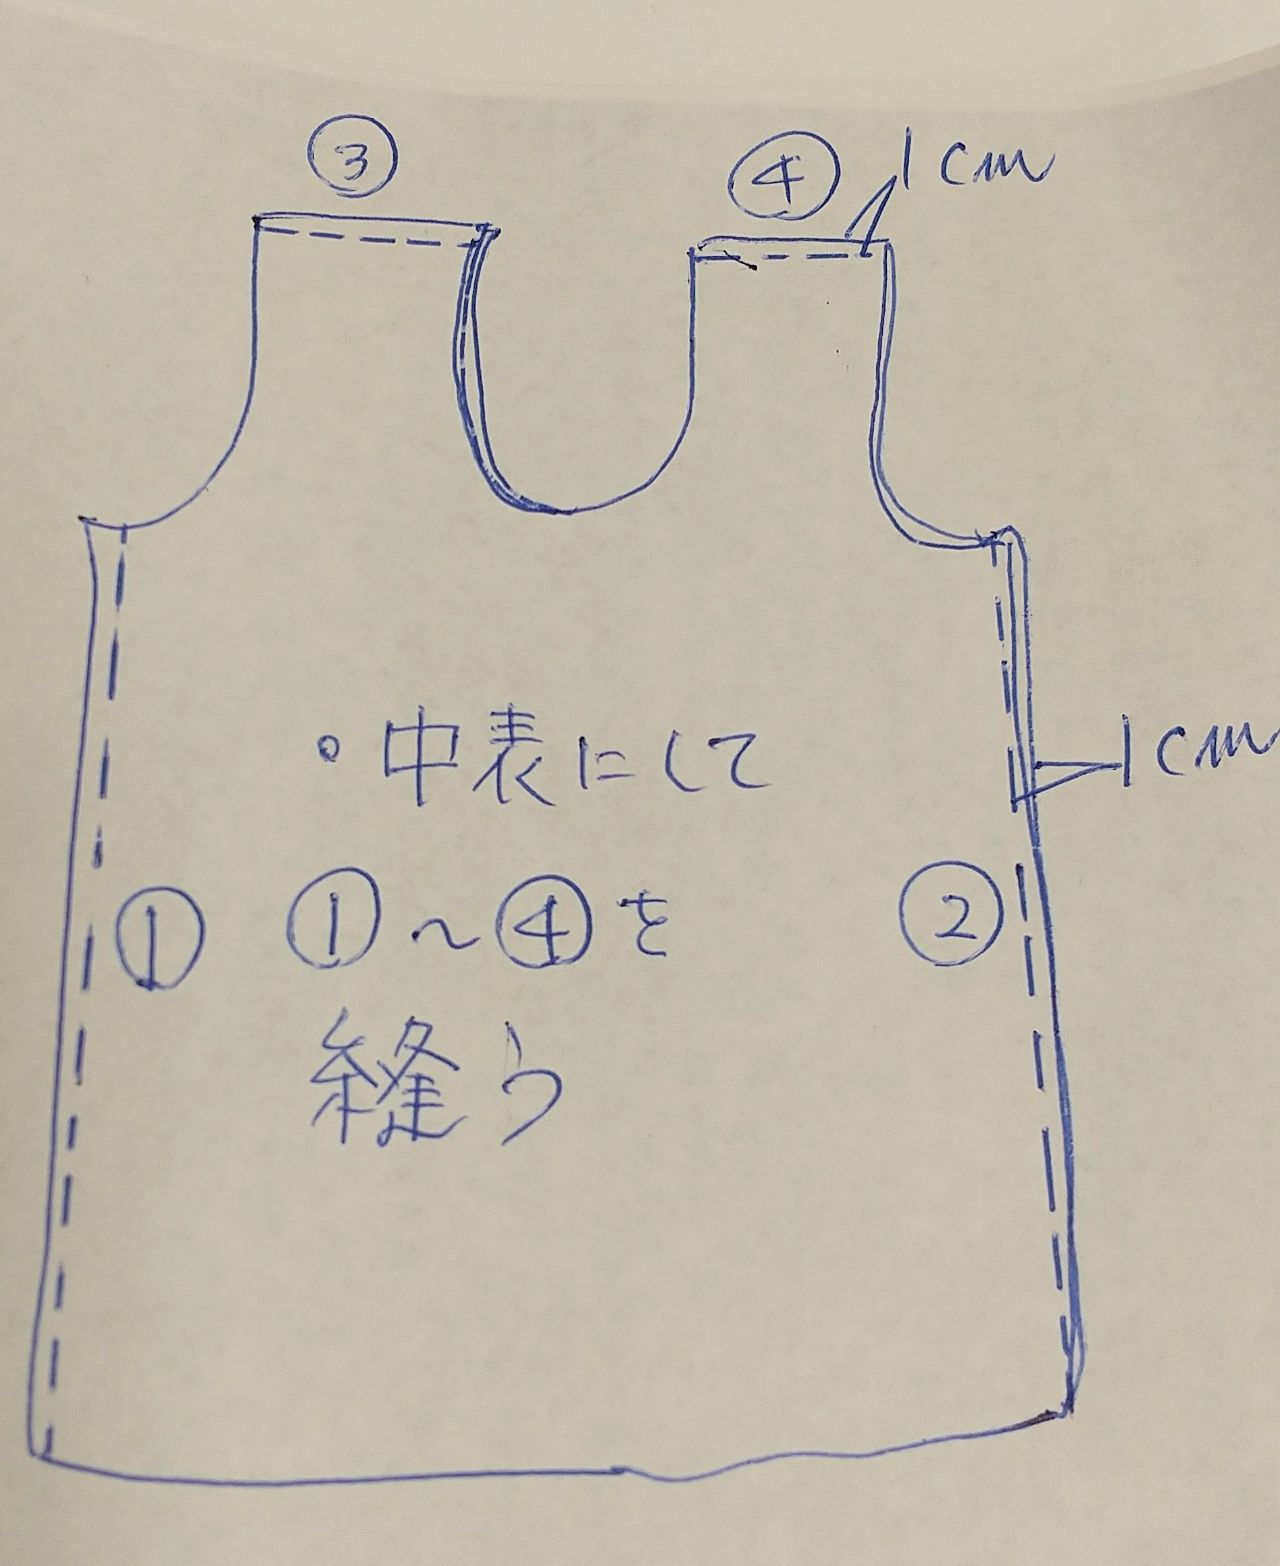 ③
④ 1cm
・中表にして
1cm
① ①〜④を ②
縫う